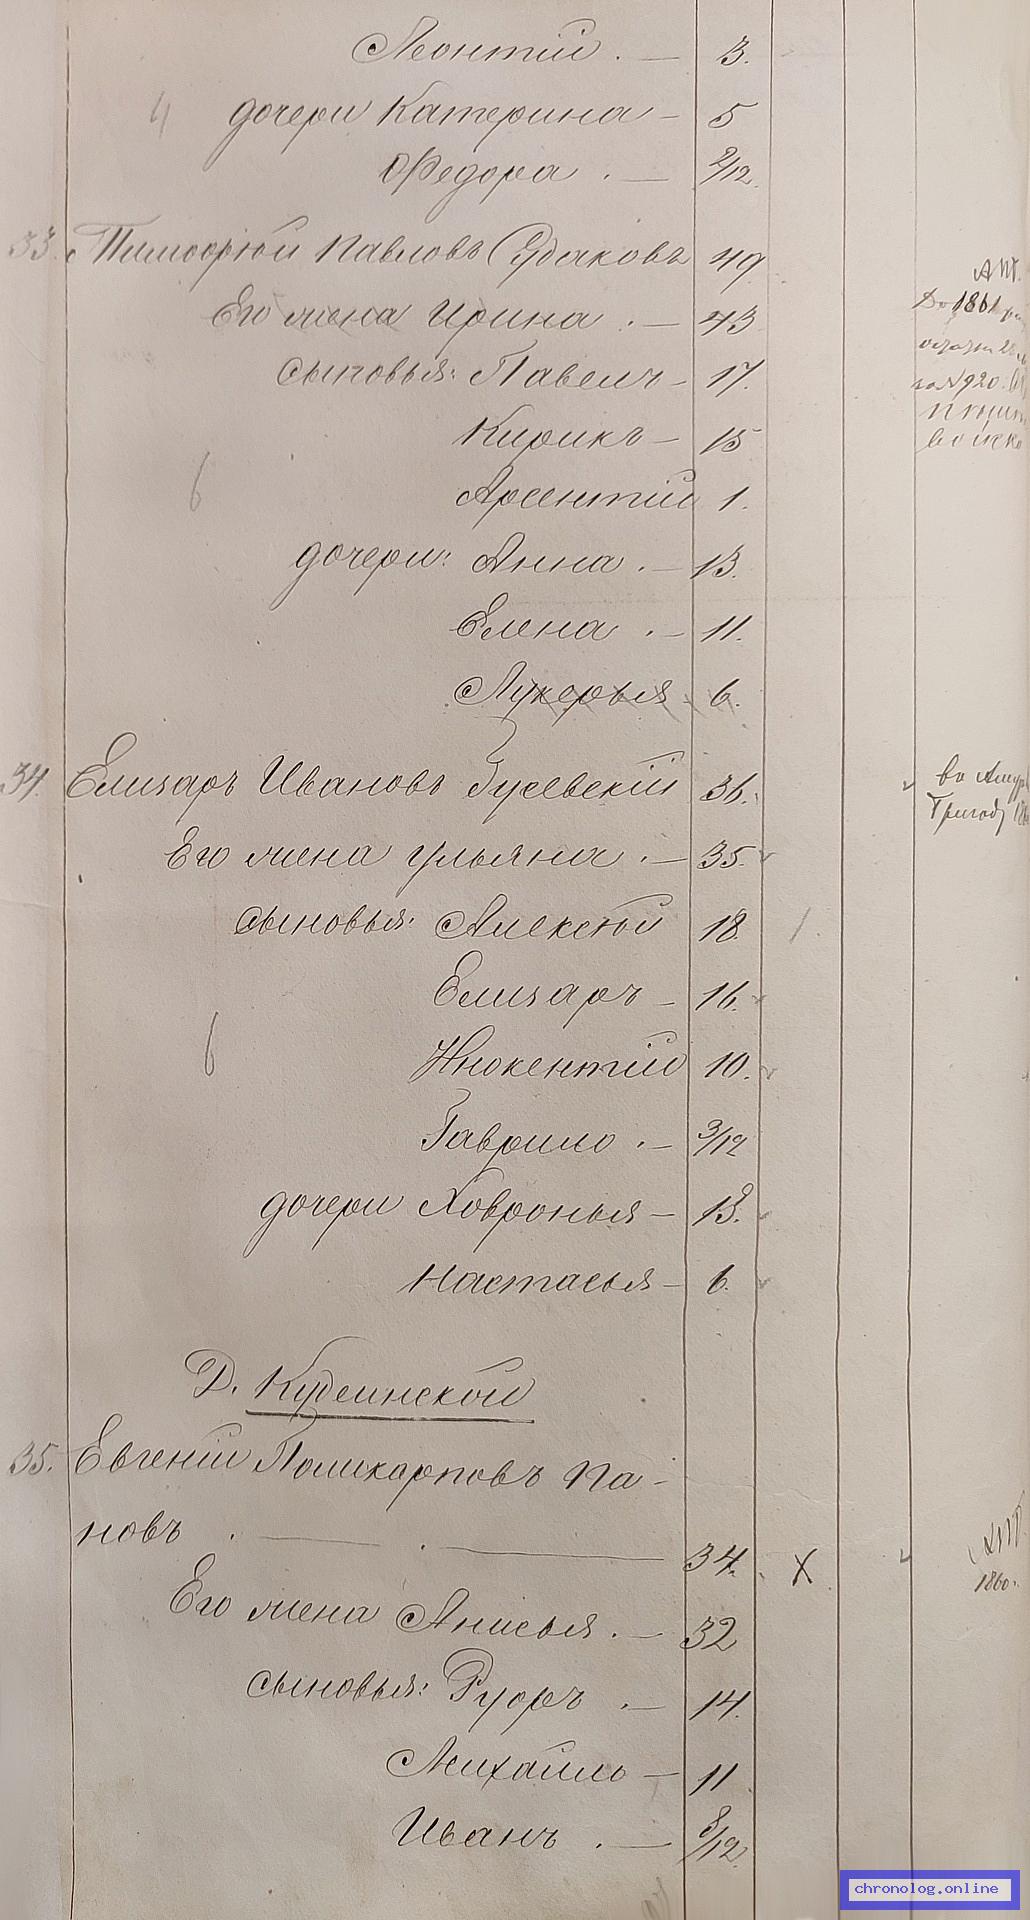 Леонтій . — 3.
4 дочери Катерина — 5
Ѳедора . — 2/12.
33. Тимофѣй Павловъ Судаковъ 49.
АПТ.
Его жена Ирина . — 43
До 1861
сыновья: Павелъ — 17.
за № 920.
Кирикъ — 15
6 Арсентій 1.
дочери: Анна . — 13.
Елена . — 11.
Лукерья 6.
34. Елизаръ Ивановъ Гусевскій 36.
во Амур
Его жена Ульяна . — 35.
сыновья: Алексѣй 18. 1.
Елизаръ — 16.
6 Инокентій 10.
Гаврило . — 3/12
дочери Ховронья — 13.
Настасья — 6.
Д. Кудеинской
35. Евгеній Поликарповъ Па-
новъ . — . — 34. X
1860 г.
Его жена Анисья . — 32
сыновья: Руфъ . — 14.
Михаилъ — 11
Иванъ . — 8/12.
chronolog.online